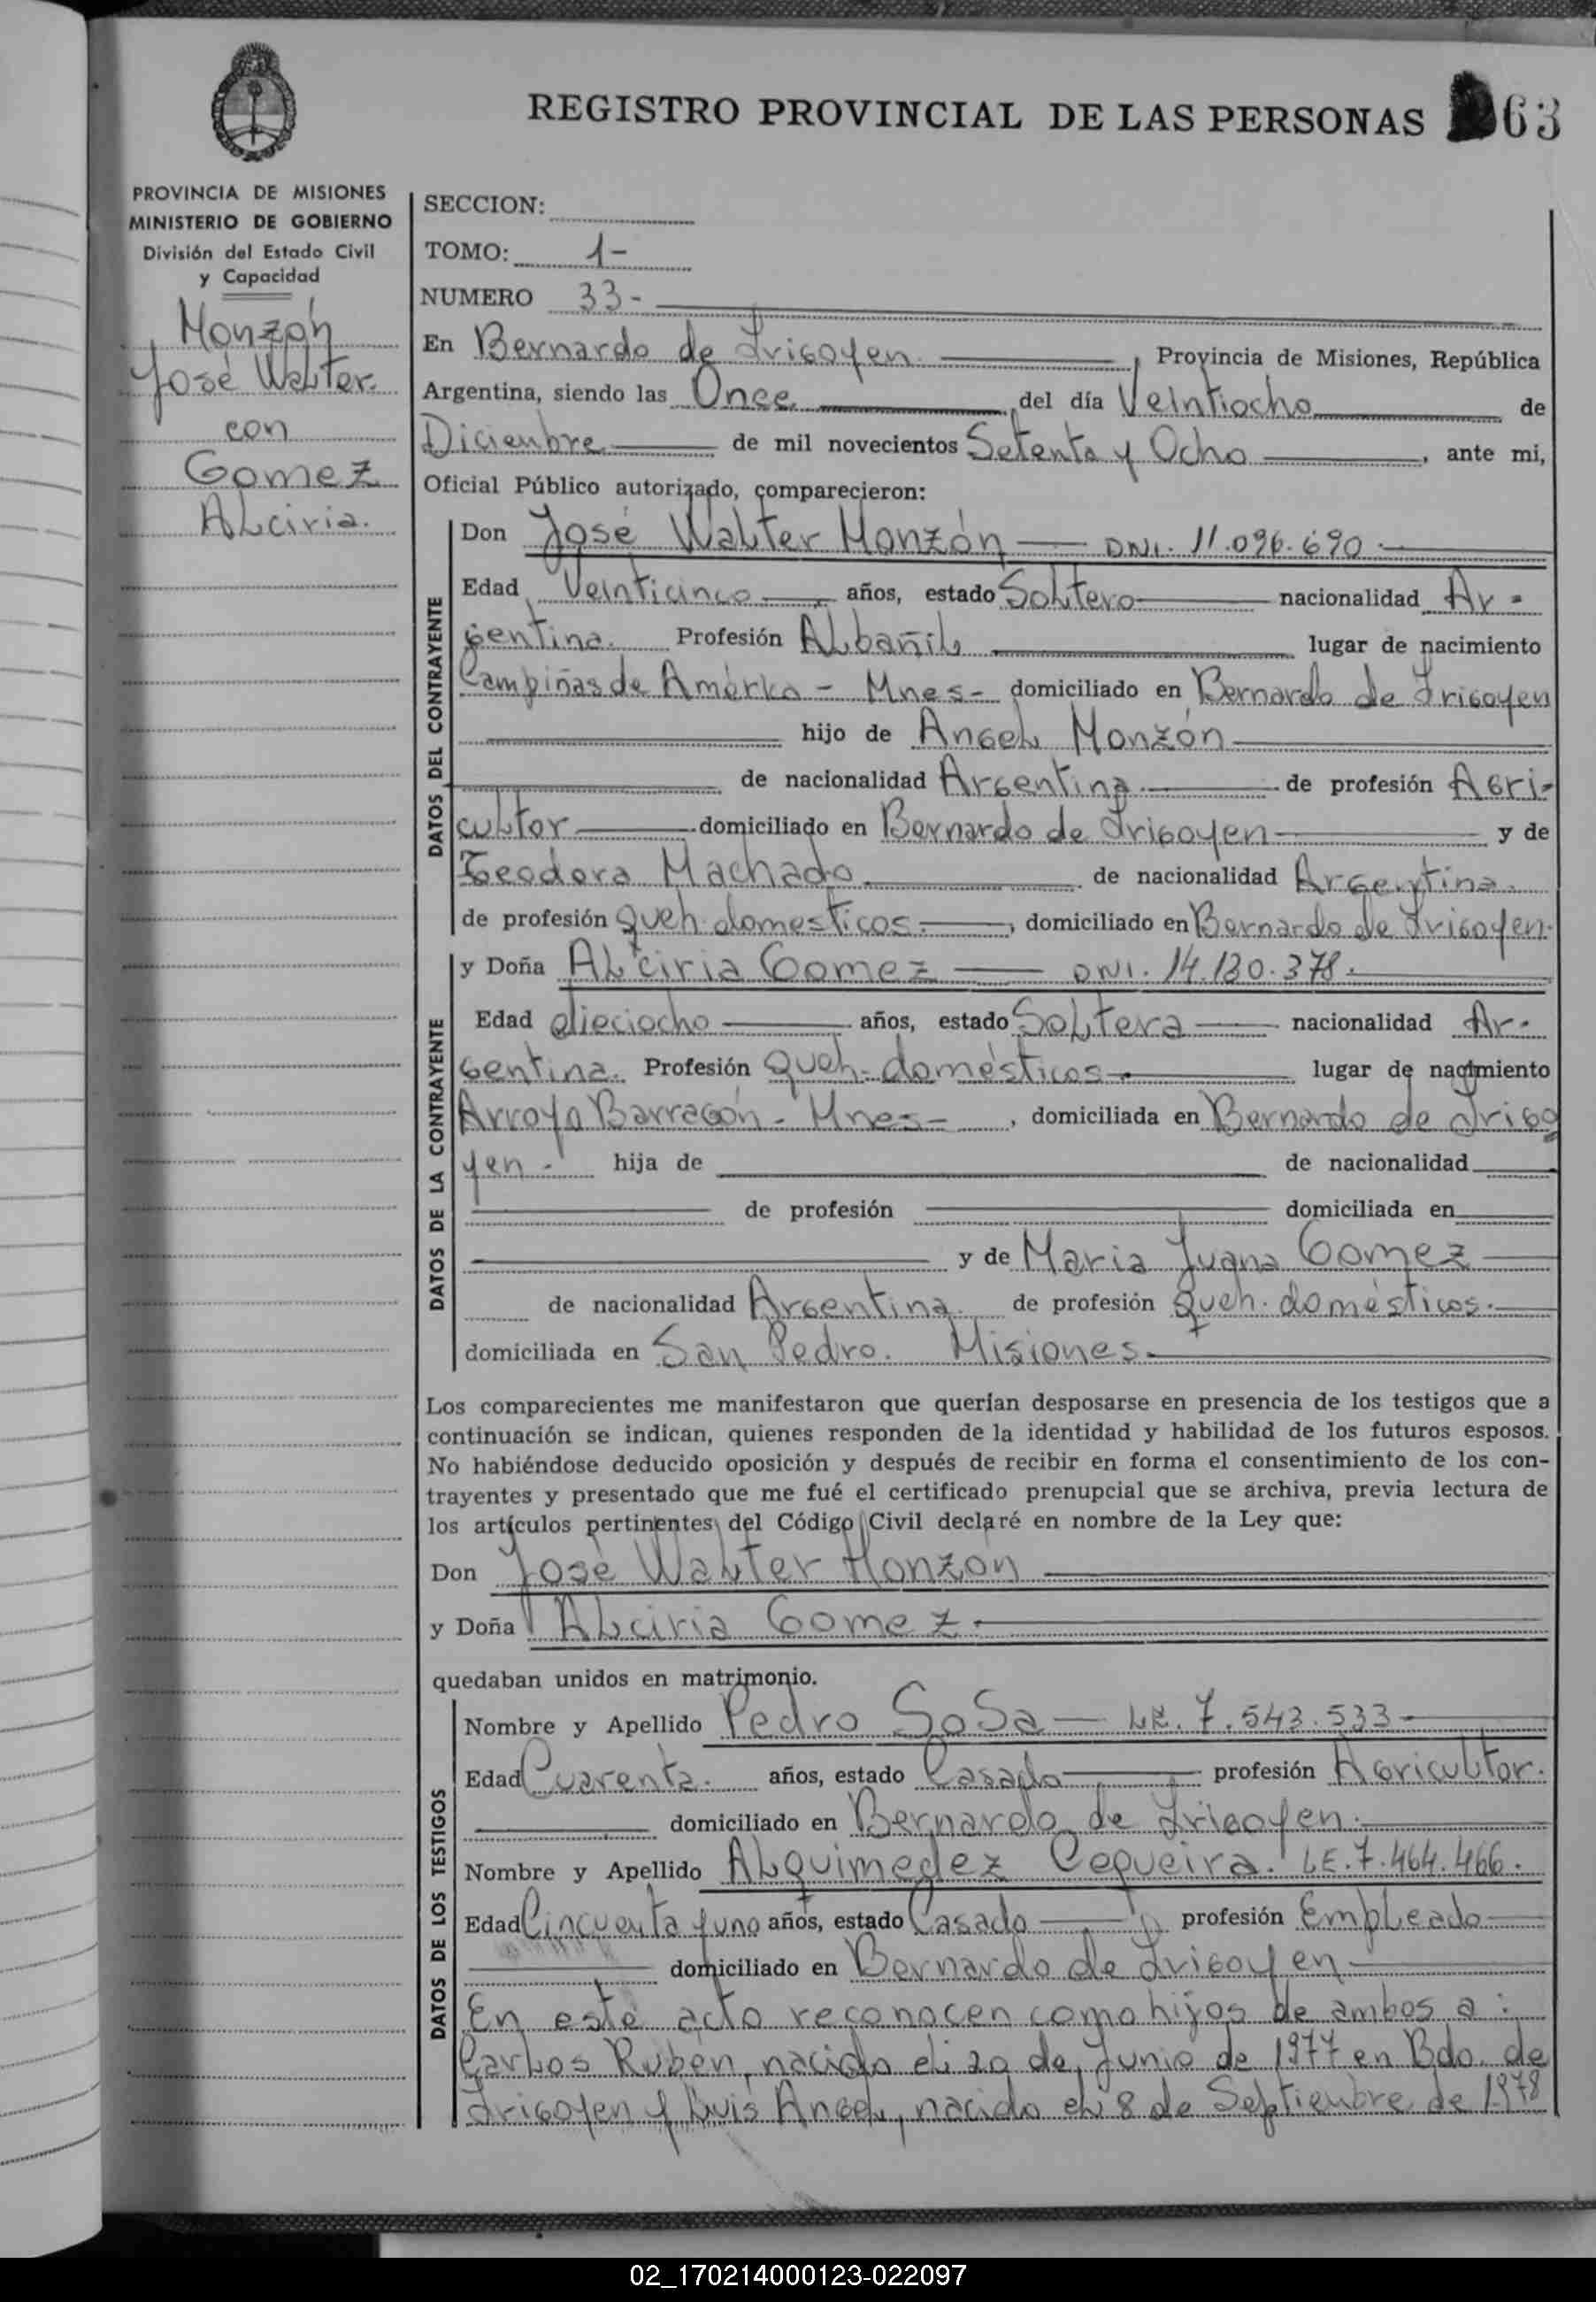 REGISTRO PROVINCIAL DE LAS PERSONAS 63
PROVINCIA DE MISIONES
MINISTERIO DE GOBIERNO
División del Estado Civil
y Capacidad
Monzón
José Walter
con
Gomez
Alciria.
SECCION:
TOMO: 1-
NUMERO 33-
En Bernardo de Irigoyen, Provincia de Misiones, República
Argentina, siendo las Once del día Veintiocho de
Diciembre de mil novecientos Setenta y Ocho, ante mi,
Oficial Público autorizado, comparecieron:
DATOS DEL CONTRAYENTE
Don José Walter Monzón — DNI. 11.096.690.
Edad Veinticinco años, estado Soltero nacionalidad Ar-
gentina. Profesión Albañil lugar de nacimiento
Campiñas de América - Mnes- domiciliado en Bernardo de Irigoyen
hijo de Angel Monzón
de nacionalidad Argentina. de profesión Agri-
cultor domiciliado en Bernardo de Irigoyen y de
Teodora Machado de nacionalidad Argentina.
de profesión queh. domesticos., domiciliado en Bernardo de Irigoyen.
DATOS DE LA CONTRAYENTE
y Doña Alciria Gomez — DNI. 14.130.378.
Edad dieciocho años, estado Soltera nacionalidad Ar-
gentina. Profesión Queh. domésticos. lugar de nacimiento
Arroyo Barracón - Mnes-, domiciliada en Bernardo de Irigo
yen - hija de de nacionalidad
de profesión domiciliada en
y de Maria Juana Gomez
de nacionalidad Argentina. de profesión queh. domésticos.
domiciliada en San Pedro. Misiones.
Los comparecientes me manifestaron que querían desposarse en presencia de los testigos que a
continuación se indican, quienes responden de la identidad y habilidad de los futuros esposos.
No habiéndose deducido oposición y después de recibir en forma el consentimiento de los con-
trayentes y presentado que me fué el certificado prenupcial que se archiva, previa lectura de
los artículos pertinentes del Código Civil declaré en nombre de la Ley que:
Don José Walter Monzón
y Doña Alciria Gomez.
quedaban unidos en matrimonio.
DATOS DE LOS TESTIGOS
Nombre y Apellido Pedro Sosa — LE. 7.543.533
Edad Cuarenta. años, estado Casado profesión Agricultor.
domiciliado en Bernardo de Irigoyen.
Nombre y Apellido Alquimedez Cequeira. LE. 7.464.466.
Edad Cincuenta y uno años, estado Casado profesión Empleado
domiciliado en Bernardo de Irigoyen
En este acto reconocen como hijos de ambos a:
Carlos Rubén, nacido el 20 de Junio de 1977 en Bdo. de
Irigoyen y Luis Angel, nacido el 8 de Septiembre de 1978
02_170214000123-022097